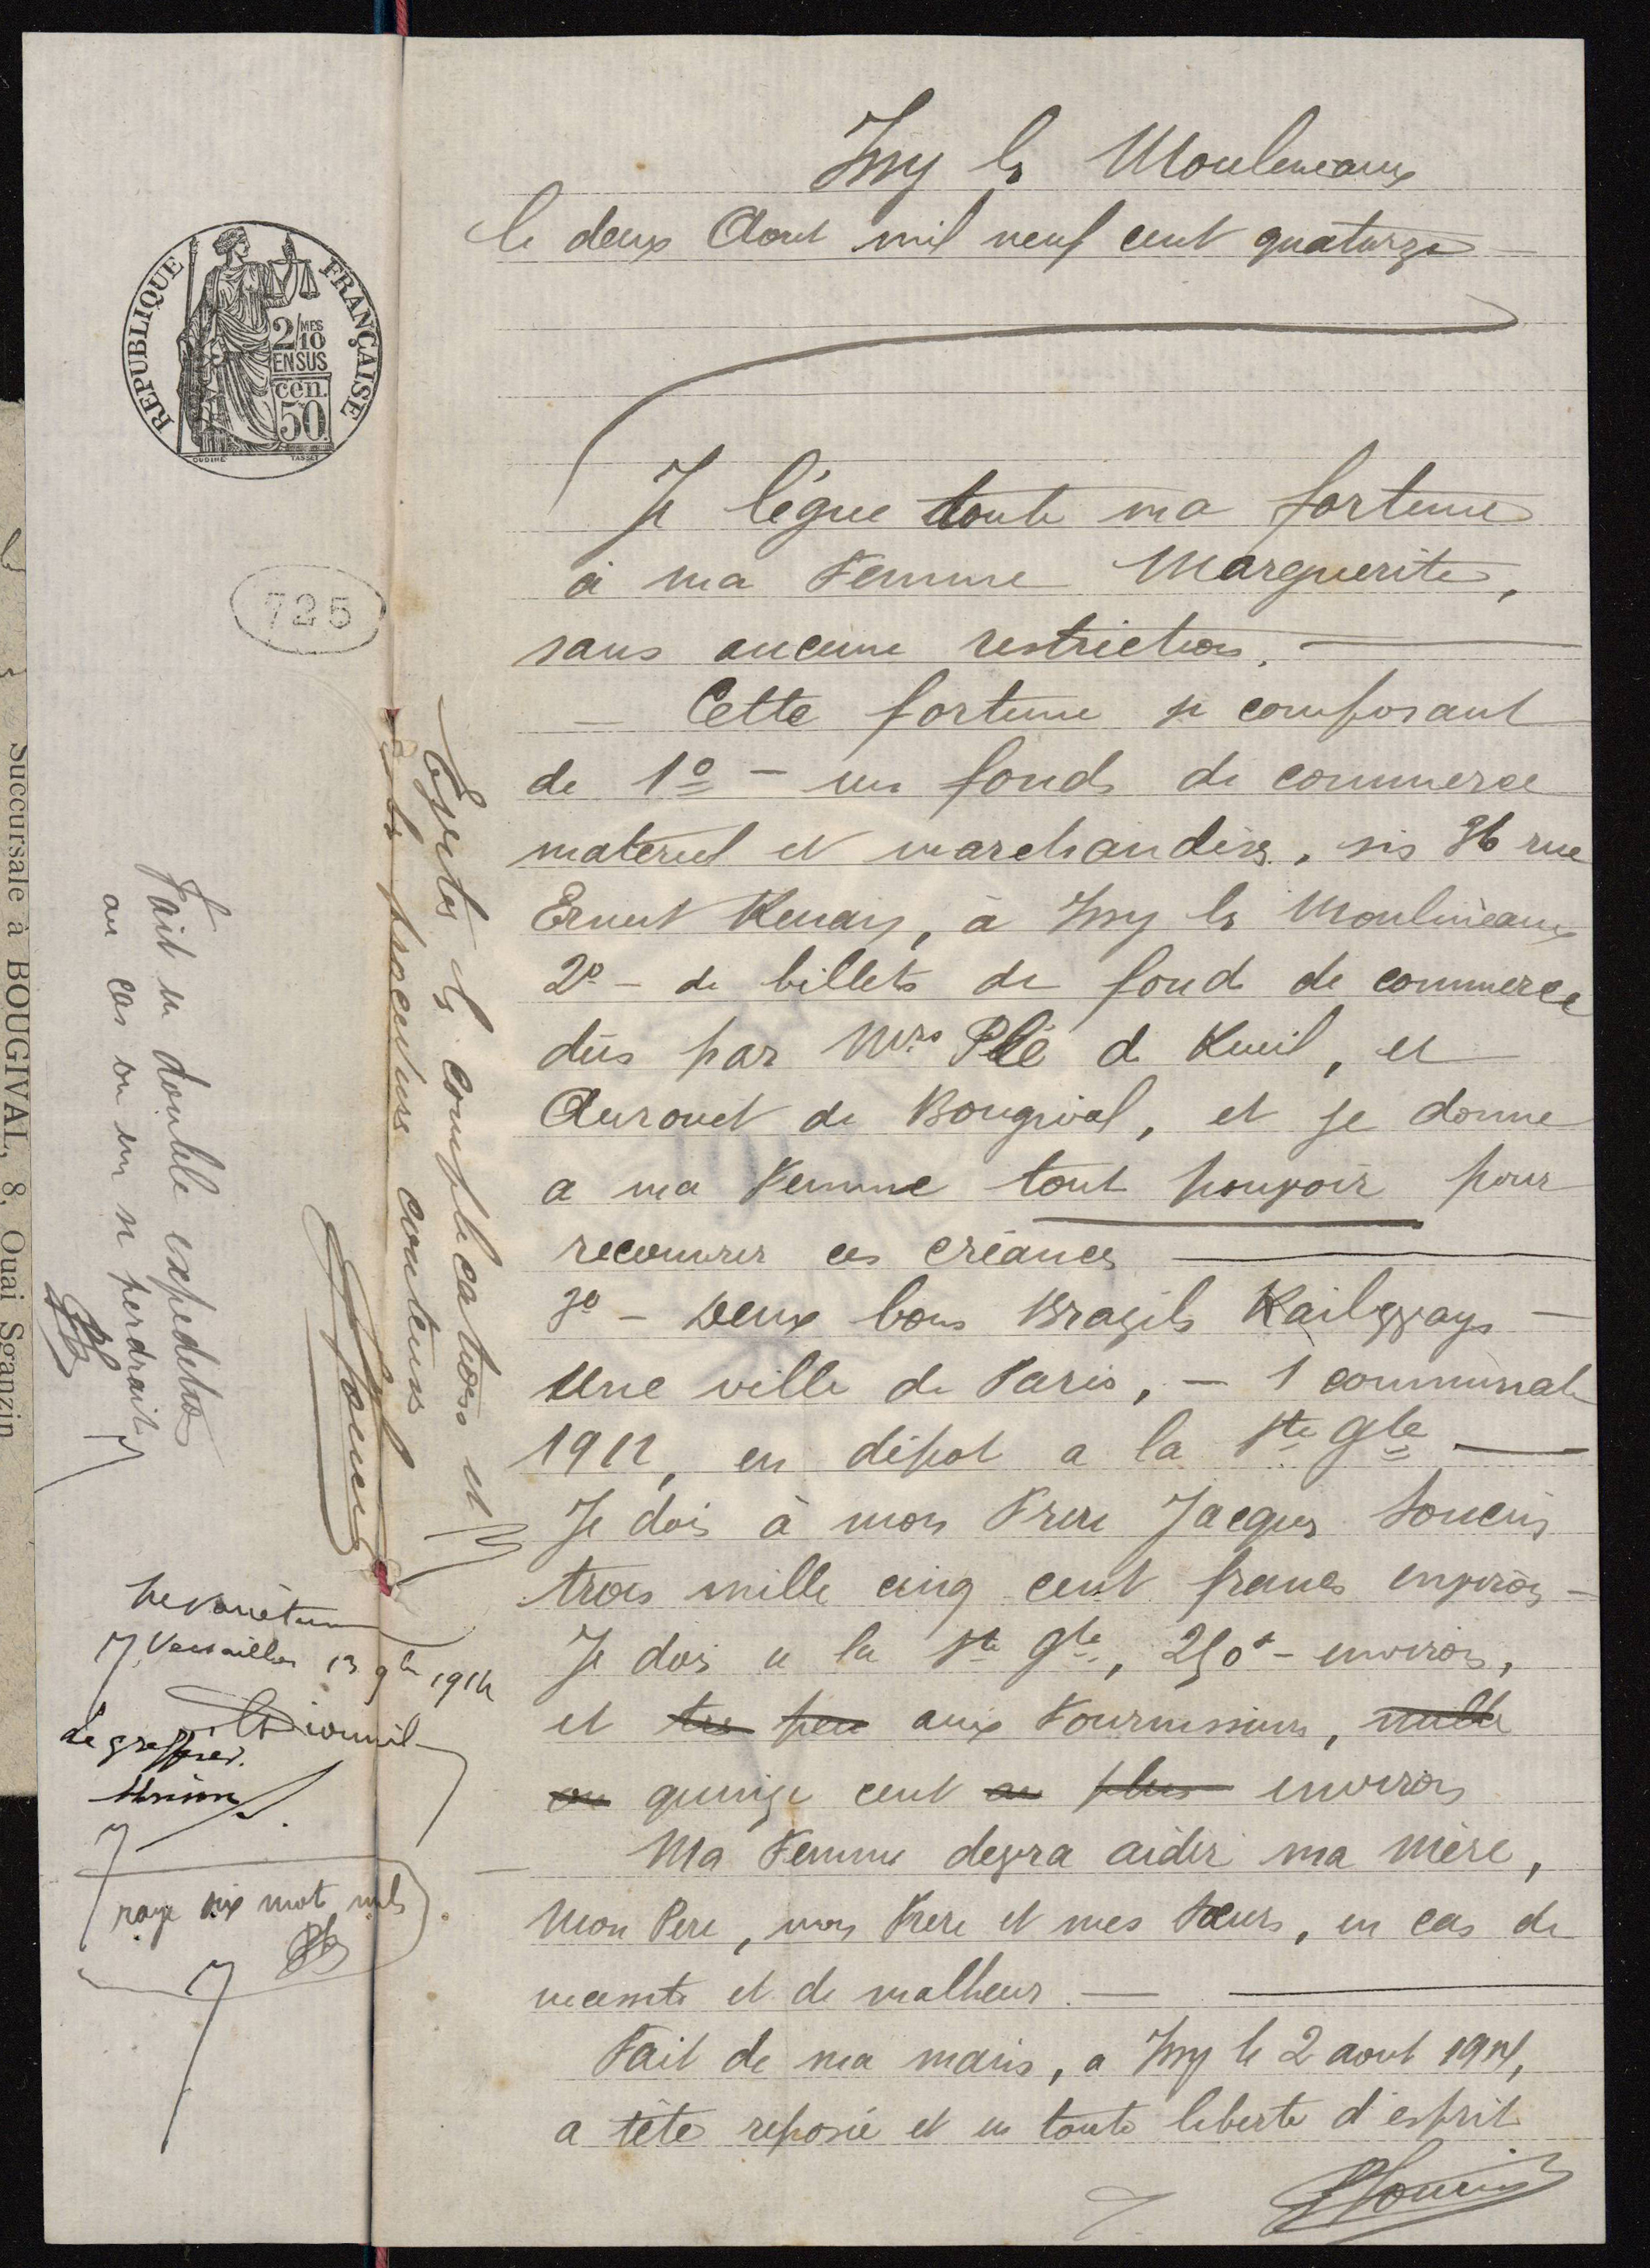 Issy ls Moulineaux
le deux Aout mil neuf cent quatorze
REPUBLIQUE FRANÇAISE
2/MES
10
EN SUS
cen.
50
OUDINÉ TASSET
725
Je lègue toute ma fortune
à ma Femme Marguerite,
sans aucune restriction.
Cette fortune se composant
de 1º - un fonds de commerce
materiel et marchandise, sis 36 rue
Ernest Renan, à Issy ls Moulineaux
2º - de billets de fond de commerce
dûs par Mrs Plé de Rueil, et
Aurouet de Bougival, et je donne
a ma Femme tout pouvoir pour
recouvrer ces créances
3º - Deux bons Brazils Railways -
Une ville de Paris, - 1 communale
1912, en dépot a la Sté Gle
Je dois à mon Frere Jacques Soucin
trois mille cinq cent francs environ -
Je dois a la Sté Gle, 250f - environ,
et tres peu aux Fournisseurs, mille
ou quinze cent au plus environ
Ma Femme devra aider ma mère,
Mon Pere, mon Frere et mes Sœurs, en cas de
necessité et de malheur
Fait de ma main, a Issy le 2 aout 1914,
a tête reposée et en toute liberté d'esprit
Soucin
Evites les complications et
les procedures couteuses
Soucin
Fait en double expedition
au cas ou un se perdrait
Ne Varietur
Versailles 13 9bre 1914
Le greffier.
rayé six mots nuls
Succursale à BOUGIVAL, 8, Quai Sganzin